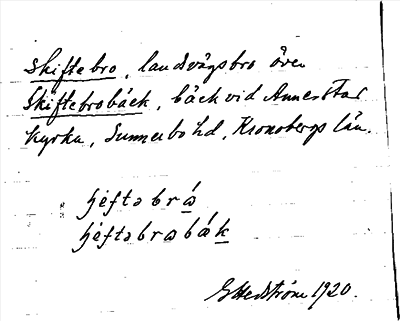 Skiftebro, landsvägsbro över
Skiftebrobäck, bäck vid Annerstad
kyrka, Sunnerbo hd, Kronobergs län.
ɧéftəbrà̱
ɧéftəbrabák̲
G Hedström 1920.